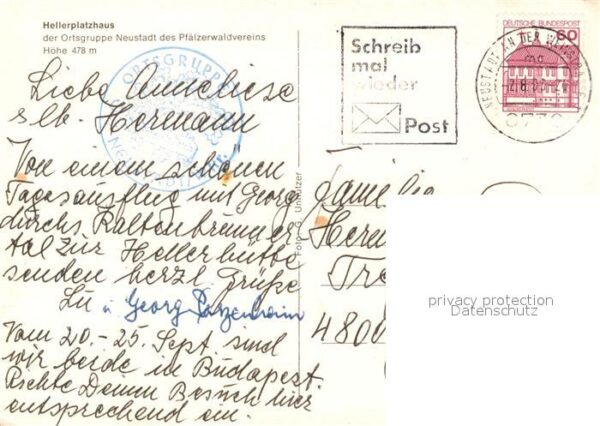 Hellerplatzhaus
der Ortsgruppe Neustadt des Pfälzerwaldvereins
Höhe 478 m
ORTSGRUPPE
Schreib
mal
wieder
Post
DEUTSCHE BUNDESPOST
60
NEUSTADT AN DER WEINSTRASSE
6730
Liebe Anneliese
u. lb. Hermann
Von einem schönen
Tagesausflug mit Georg
durchs Kaltenbrunner
tal zur Hellerhütte
senden herzl. Grüße
Lu u. Georg
Vom 20.-25. Sept sind
wir beide in Budapest.
Richte Deinen Besuch hier
entsprechend ein.
Foto: G. Unnützer
Familie
Herm
Tre
4800
privacy protection
Datenschutz